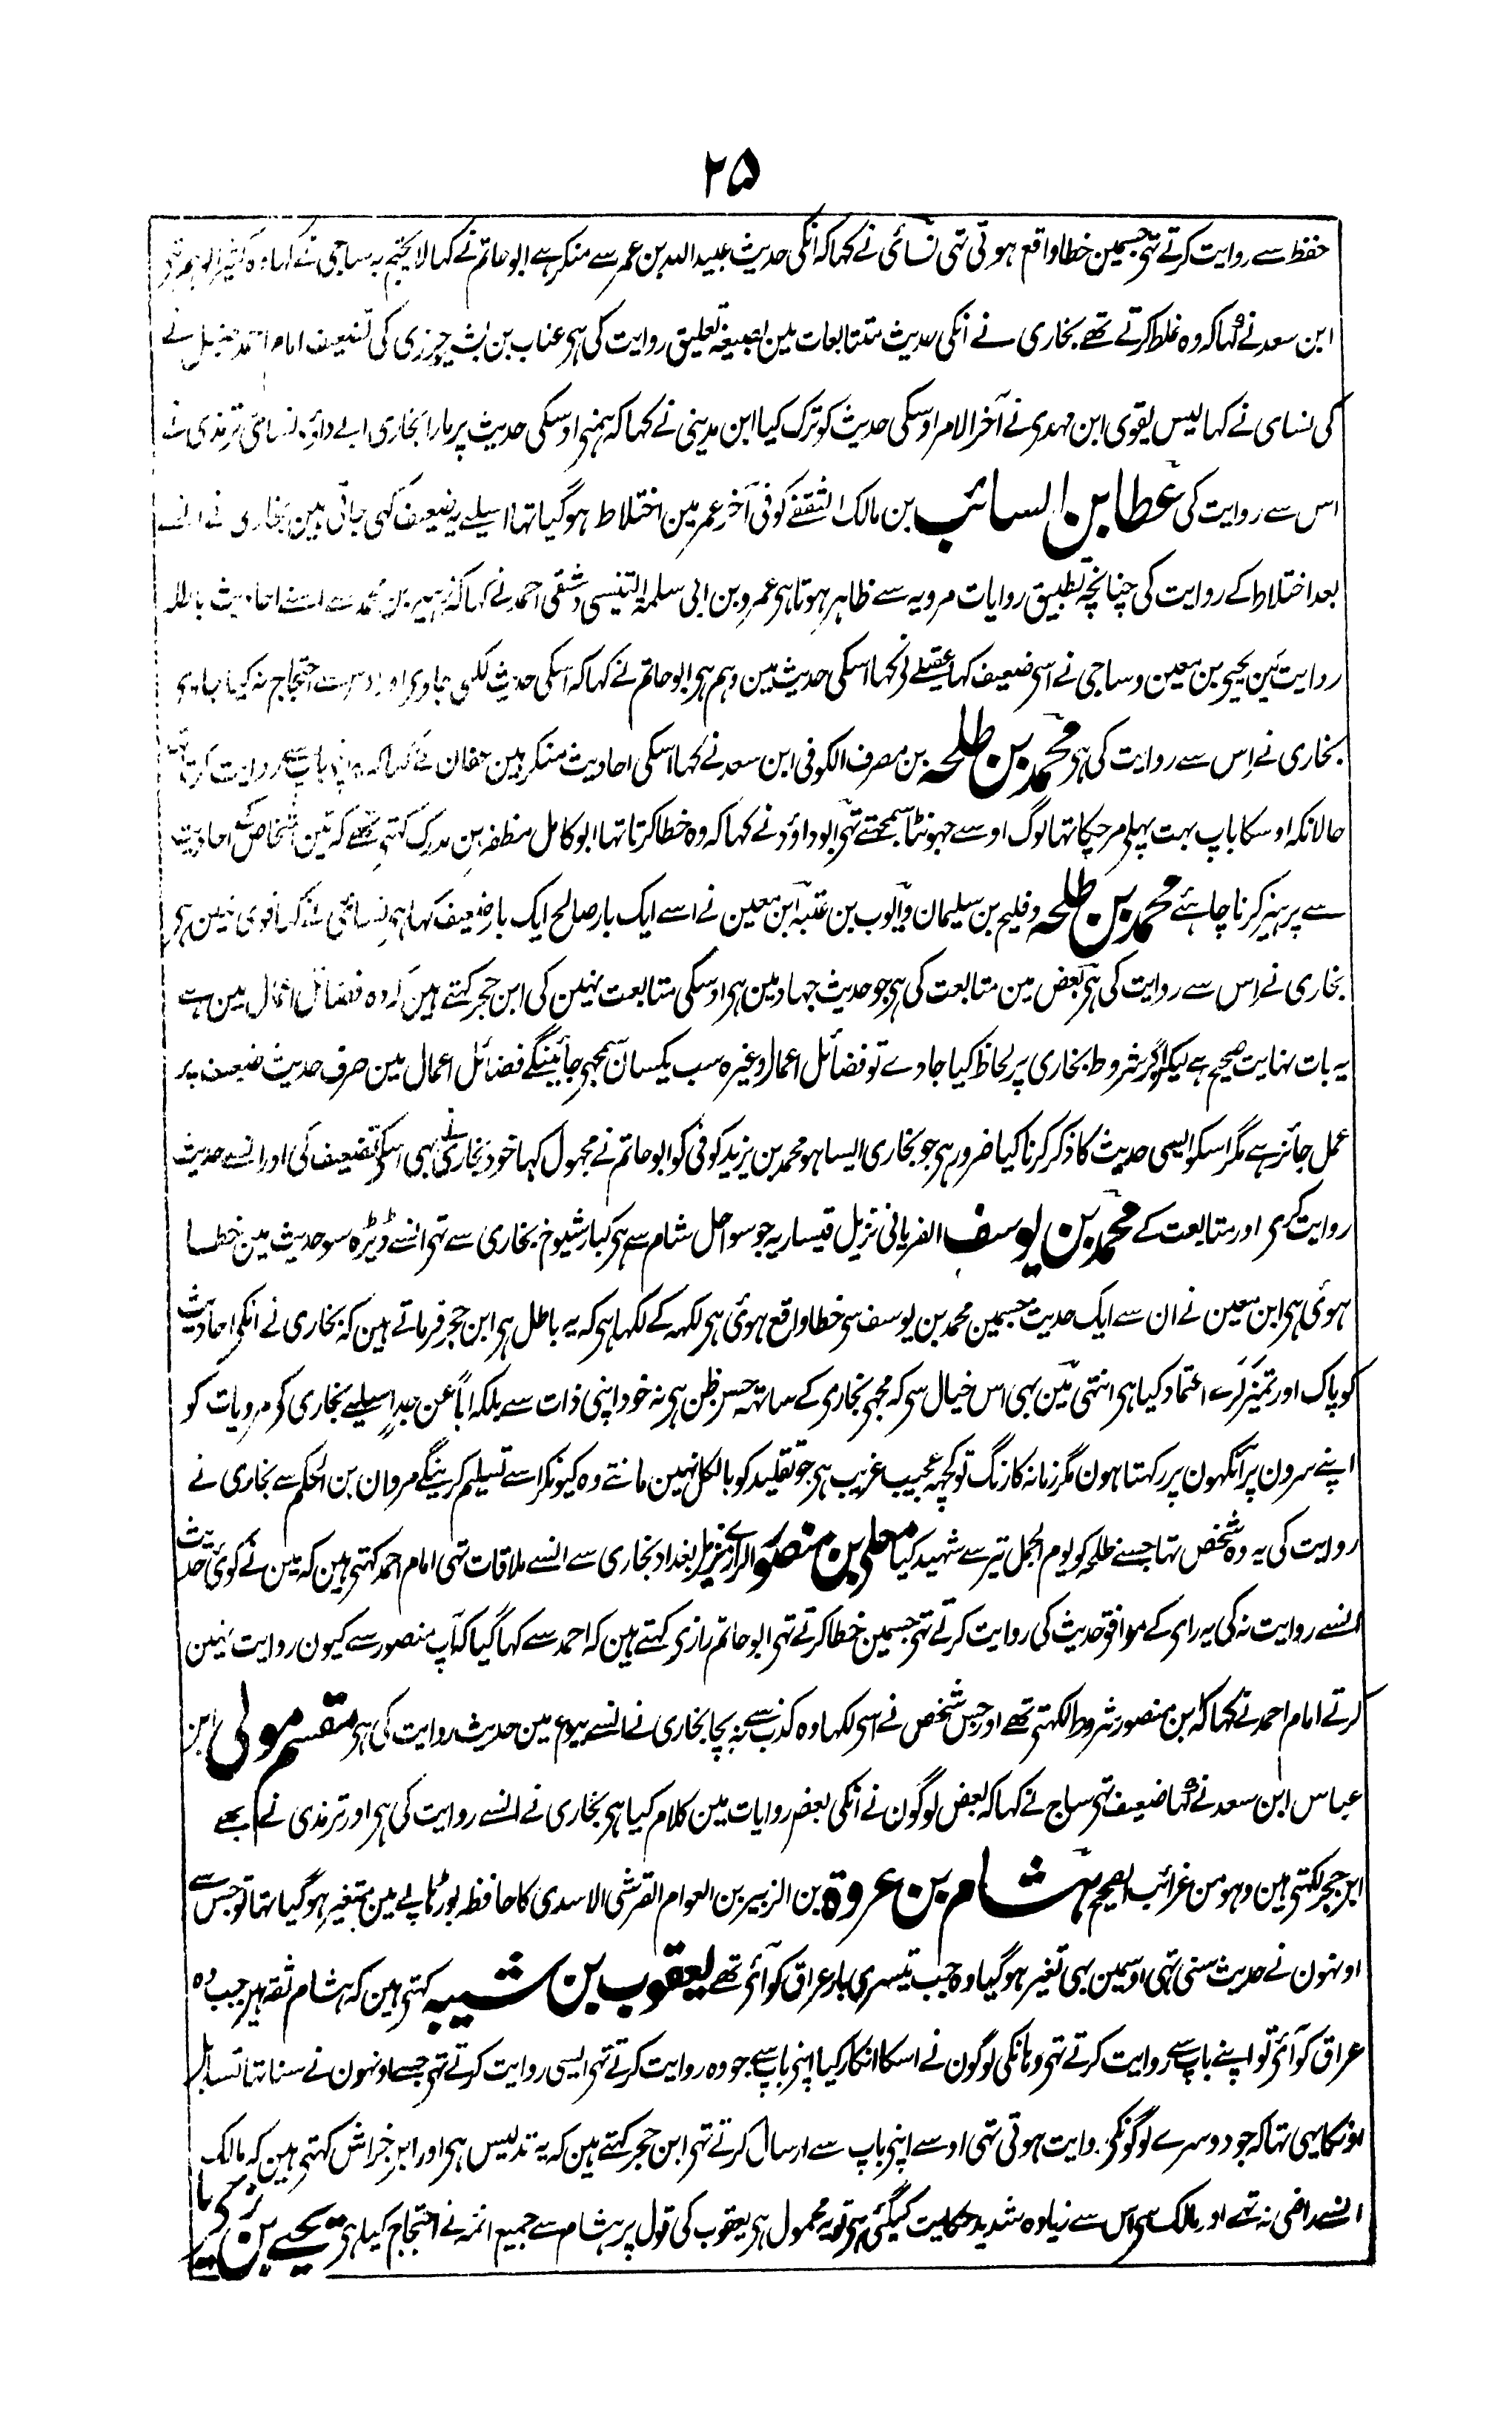 ۲۵
حفظ سے روایت کرتے تہی جسمین خطا واقع ہوتی تہی نسائی نے کہا کہ انکی حدیث عبید اللہ بن عمر سے منکر ہے ابو حاتم نے کہا لا یحتج بہ ساجی نے کہا وہ کثیر الوہم تہے
ابن سعد نے کہا کہ وہ غلط کرتے تھے بخاری نے انکی حدیث متابعات مین بصیغہ تعلیق روایت کی ہی عتاب بن بشیر جزری کی تضعیف امام احمد حنبل نے
کی نسای نے کہا لیس بقوی ابن مہدی نے آخر الامر اوسکی حدیث کو ترک کیا ابن مدینی نے کہا کہ ہمنے اوسکی حدیث پر مارا بخاری ابے داؤد نسائی ترمذی نے
اس سے روایت کی عطا بن السائب بن مالک الثقفے کوفی آخر عمر مین اختلاط ہوگیا تہا اسیلے یہ ضعیف کہی جاتی ہین بخاری نے انسے
بعد اختلاط کے روایت کی چنانچہ تطبیق روایات مرویہ سے ظاہر ہوتا ہی عمرو بن ابی سلمۃ التنیسی دمشقی احمد نے کہا کہ زہیر بن محمد سے اسنے احادیث باطلہ
روایت کین یحیی بن معین وساجی نے اسی ضعیف کہا عقیلے نے کہا اسکی حدیث مین وہم ہی ابو حاتم نے کہا کہ اسکی حدیث لکہی جاوی اور اوس سے احتجاج نہ کیا جاوی
بخاری نے اس سے روایت کی ہی محمد بن طلحہ بن مصرف الکوفی ابن سعد نے کہا اسکی احادیث منکر ہین عفان نے کہا کہ اپنے باپ سے روایت کرتا تہا
حالانکہ اوسکا باپ بہت پہلی مرچکا تہا لوگ اوسے جہوٹا سمجہتے تہی ابو داؤد نے کہا کہ وہ خطا کرتا تہا ابو کامل مظفر بن مدرک کہتی تھے کہ تین اشخاص کے احادیث
سے پرہیز کرنا چاہئے محمد بن طلحہ وفلیح بن سلیمان وایوب بن عتبہ ابن معین نے اسے ایک بار صالح ایک بار ضعیف کہا ہی نسائی نے کہا قوی نہین ہی
بخاری نے اس سے روایت کی ہی بعض مین متابعت کی ہی جو حدیث جہاد مین ہی اوسکی متابعت نہین کی ابن حجر کہتے ہین کہ وہ فضائل اعمال مین ہے
یہ بات نہایت صحیح ہے لیکن اگر شروط بخاری پر لحاظ کیا جاوے تو فضائل اعمال وغیرہ سب یکسان سمجہی جائینگے فضائل اعمال مین صرف حدیث ضعیف پر
عمل جائز ہے مگر اسکو ایسی حدیث کا ذکر کرنا کیا ضرور ہی جو بخاری ایسا ہو محمد بن یزید کوفی کو ابو حاتم نے مجہول کہا خود بخاری نے بہی اسکی تضعیف کی اور انسے حدیث
روایت کری اور متابعت کے محمد بن یوسف الفریابی نزیل قیساریہ جو سواحل شام سے ہی کبار شیوخ بخاری سے تہی انسے ڈیڑہ سو حدیث مین خطا
ہوئی ہی ابن معین نے ان سے ایک حدیث جسمین محمد بن یوسف سی خطا واقع ہوئی ہی لکہہ کے لکہا ہی کہ یہ باطل ہی ابن حجر فرماتے ہین کہ بخاری نے انکی احادیث
کو پاک اور تمیز کر کے اعتماد کیا ہی انتہی مین بہی اس خیال سی کہ مجہی بخاری کے ساتہہ حسن ظن ہی نہ خود اپنی ذات سے بلکہ اباً عن جدٍ اسیلیے بخاری کی مرویات کو
اپنے سرون پر آنکہون پر رکہتا ہون مگر زمانہ کا رنگ تو کچہہ عجیب غریب ہی جو تقلید کو بالکل نہین مانتے وہ کیونکر اسے تسلیم کرینگے مروان بن الحکم سے بخاری نے
روایت کی یہ وہ شخص تہا جسنے طلحہ کو یوم الجمل تیر سے شہید کیا معلی بن منصور الرازی نزیل بغداد بخاری سے انسے ملاقات تہی امام احمد کہتی ہین کہ مین نے کوئی حدیث
انسے روایت نہ کی یہ رای کے موافق حدیث کی روایت کرتے تہی جسمین خطا کرتے تہی ابو حاتم رازی کہتے ہین کہ احمد سے کہا گیا کہ آپ منصور سے کیون روایت نہین
کرتے امام احمد نے کہا کہ بن منصور شروط لکہتی تھے اور جس شخص نے اسی لکہا وہ کذب سے نہ بچا بخاری نے انسے بیوع مین حدیث روایت کی ہی مقسم مولی ابن
عباس ابن سعد نے کہا ضعیف تہی ساج نے کہا کہ بعض لوگون نے انکی بعض روایات مین کلام کیا ہی بخاری نے انسے روایت کی ہی اور ترمذی نے بہے
ابن حجر لکہتی ہین وہو من غرائب الصحیح ہشام بن عروۃ بن الزبیر بن العوام القرشی الاسدی کا حافظہ بوڑہاپے مین متغیر ہوگیا تہا تو جس سے
اونہون نے حدیث سنی تہی اوسمین بہی تغیر ہوگیا وہ جب تیسری بار عراق کو آئی تھے یعقوب بن شیبہ کہتی ہین کہ ہشام ثقہ ہین جب وہ
عراق کو آئی تو اپنے باپ سے روایت کرتے تہی وہانکی لوگون نے اسکا انکار کیا اپنی باپ سے جو وہ روایت کرتے تہی ایسی روایت کرتے تہی جسے اونہون نے سنا تہا تساہل
اونکا یہی تہا کہ جو دوسرے لوگونکی روایت ہوتی تہی اوسے اپنی باپ سے ارسال کرتے تہی ابن حجر کہتے ہین کہ یہ تدلیس ہی اور ابن خراش کہتی ہین کہ مالک
انسے راضی نہ تھے اور مالک سی اس سے زیادہ شدید حکایت کیگئی ہی تو یہ محمول ہی یعقوب کی قول پر ہشام سے جمیع ائمہ نے احتجاج کیا ہی یحیے بن زکریا